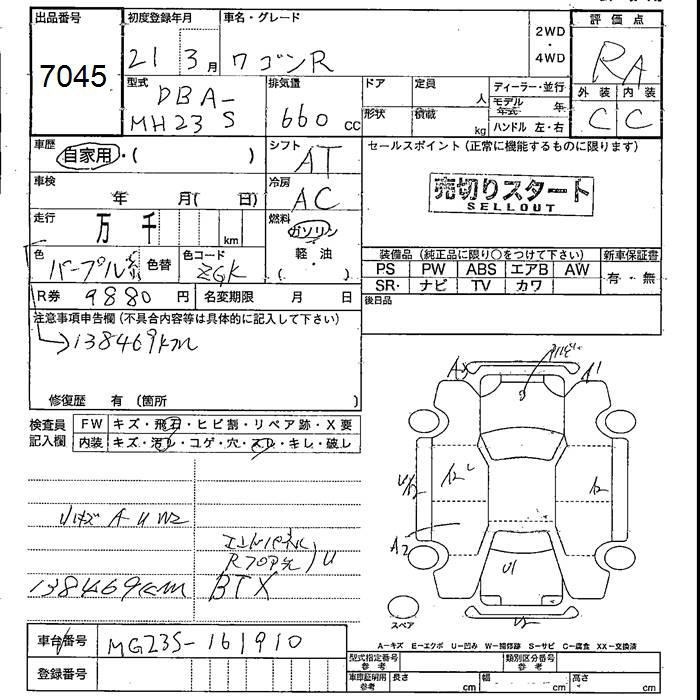 出品番号
7045
初度登録年月
21 3月
車名・グレード
ワゴンR
2WD
・
4WD
評価点
RA
外装 内装
C C
型式
DBA-
MH23S
排気量
660 cc
ドア
形状
定員 人
積載 kg
ディーラー・並行
モデル
年式 年
ハンドル 左・右
車歴
自家用・( )
シフト
AT
セールスポイント(正常に機能するものに限ります)
売切りスタート
SELLOUT
車検
年 月( 日)
冷房
AC
走行
万 千 km
燃料
ガソリン
軽・油
( ・ )
色
パープル系
色替
色コード
ZGK
装備品(純正品に限り○をつけて下さい)
新車保証書
PS PW ABS エアB AW
SR・ ナビ TV カワ
有・無
R券 9880円
名変期限 月 日
後日品
注意事項申告欄(不具合内容等は具体的に記入して下さい)
→138469km
修復歴 有(箇所 )
検査員
記入欄
FW キズ・飛石・ヒビ割・リペア跡・X要
内装 キズ・汚レ・コゲ・穴・スレ・キレ・破レ
リキズ A U W2
エンドパネル
Rフロア先 U
138469km BTX
A1
A2
U1
スペア
A-キズ E-エクボ U-凹み W-補修跡 S-サビ C-腐食 XX-交換済
車台番号
MG23S-161910
登録番号
型式指定番号
参考
類別区分番号
参考
車庫証明用
参考
長さ cm
幅 cm
高さ cm